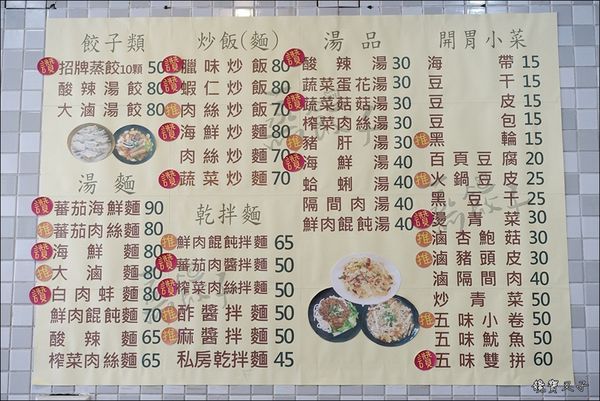 餃子類
讚 招牌蒸餃10顆 50
酸辣湯餃 80
大滷湯餃 80
湯麵
讚 蕃茄海鮮麵 90
推 蕃茄肉絲麵 80
讚 海鮮麵 80
推 大滷麵 80
讚 白肉蚌麵 80
鮮肉餛飩麵 70
酸辣麵 65
榨菜肉絲麵 65
炒飯(麵)
讚 臘味炒飯 80
讚 蝦仁炒飯 80
推 肉絲炒飯 70
讚 海鮮炒麵 80
肉絲炒麵 70
讚 蔬菜炒麵 70
乾拌麵
推 鮮肉餛飩拌麵 65
讚 蕃茄肉醬拌麵 50
讚 榨菜肉絲拌麵 50
推 酢醬拌麵 50
推 麻醬拌麵 50
私房乾拌麵 45
湯品
讚 酸辣湯 30
蔬菜蛋花湯 30
讚 蔬菜菇菇湯 30
榨菜肉絲湯 30
推 豬肝湯 30
讚 海鮮湯 40
蛤蜊湯 40
隔間肉湯 40
鮮肉餛飩湯 40
開胃小菜
海帶 15
豆干 15
豆皮 15
豆包 15
推 黑輪 15
百頁豆腐 20
推 火鍋豆皮 25
黑豆干 25
讚 燙青菜 30
推 滷杏鮑菇 30
推 滷豬頭皮 30
滷隔間肉 40
炒青菜 50
推 五味小卷 50
讚 五味魷魚 50
讚 五味雙拼 60